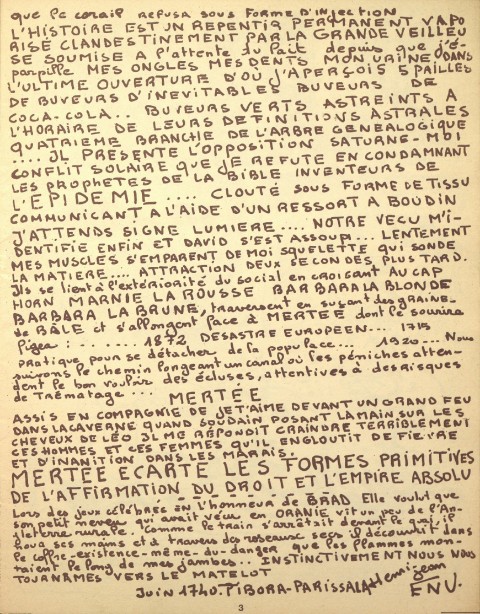 que le corail refusa sous forme d'injection
L'HISTOIRE EST UN REPENTIR PERMANENT VAPO
RISÉ CLANDESTINEMENT PAR LA GRANDE VEILLEU
SE SOUMISE A l'attente du lait depuis que j'é-
parpille MES ONGLES MES DENTS MON URINE DANS
L'ULTIME OUVERTURE D'OÙ J'APERÇOIS 5 PAILLES
DE BUVEURS D'INEVITABLES BUVEURS DE
COCA-COLA.. BUVEURS VERTS ASTREINTS A
L'HORAIRE DE LEURS DEFINITIONS ASTRALES
QUATRIEME BRANCHE DE L'ARBRE GENEALOGIQUE
.... IL PRESENTE L'OPPOSITION SATURNE-MOI
CONFLIT SOLAIRE QUE JE REFUTE EN CONDAMNANT
LES PROPHETES DE LA BIBLE INVENTEURS DE
L'EPIDEMIE .... CLOUTÉ SOUS FORME DE TISSU
COMMUNICANT A L'AIDE D'UN RESSORT A BOUDIN
J'ATTENDS SIGNE LUMIERE .... NOTRE VECU M'I-
DENTIFIE ENFIN ET DAVID S'EST ASSOUPI... LENTEMENT
MES MUSCLES S'EMPARENT DE MOI SQUELETTE QUI SONDE
LA MATIERE.... ATTRACTION DEUX SECONDES PLUS TARD.
Ils se lient à l'extériorité du social en croisant AU CAP
HORN MARNIE LA ROUSSE BARBARA LA BLONDE
BARBARA LA BRUNE, traversent en suçant des GRAINE-
de BÂLE et s'allongent face à MERTÉE dont le sourire
figea : ....... 1872 DESASTRE EUROPEEN... 1715
PRATIQUE pour se détacher de la populace... 1920... Nous
suivrons le chemin longeant un canal où les péniches atten-
dent le bon vouloir des écluses, attentives à des risques
de Trématage .... MERTÉE
ASSIS EN COMPAGNIE DE JET'AIME DEVANT UN GRAND FEU
DANS LA CAVERNE QUAND SOUDAIN POSANT LA MAIN SUR LES
CHEVEUX DE LÉO IL ME REPONDIT CRAINDRE TERRIBLEMENT
CES HOMMES ET CES FEMMES QU'IL ENGLOUTIT DE FIEVRE
ET D'INANITION DANS LES MARAIS.
MERTÉE ECARTE LES FORMES PRIMITIVES
DE L'AFFIRMATION DU DROIT ET L'EMPIRE ABSOLU
Lors des jeux célébrés EN L'honneur de BRAD Elle voulut que
son petit neveu qui avait vécu en ORANIE vit un peu de l'An-
gleterre rurale. Comme le train s'arrêtait devant le
ses mains et à travers des roseaux secs il découvrit dans
le coffre-existence-même-du-danger que les flammes mon-
taient le long de mes jambes.. INSTINCTIVEMENT NOUS NOUS
TOURNAMES VERS LE MATELOT
JUIN 1740. PIBORA-PARISSALA
ENV.
3